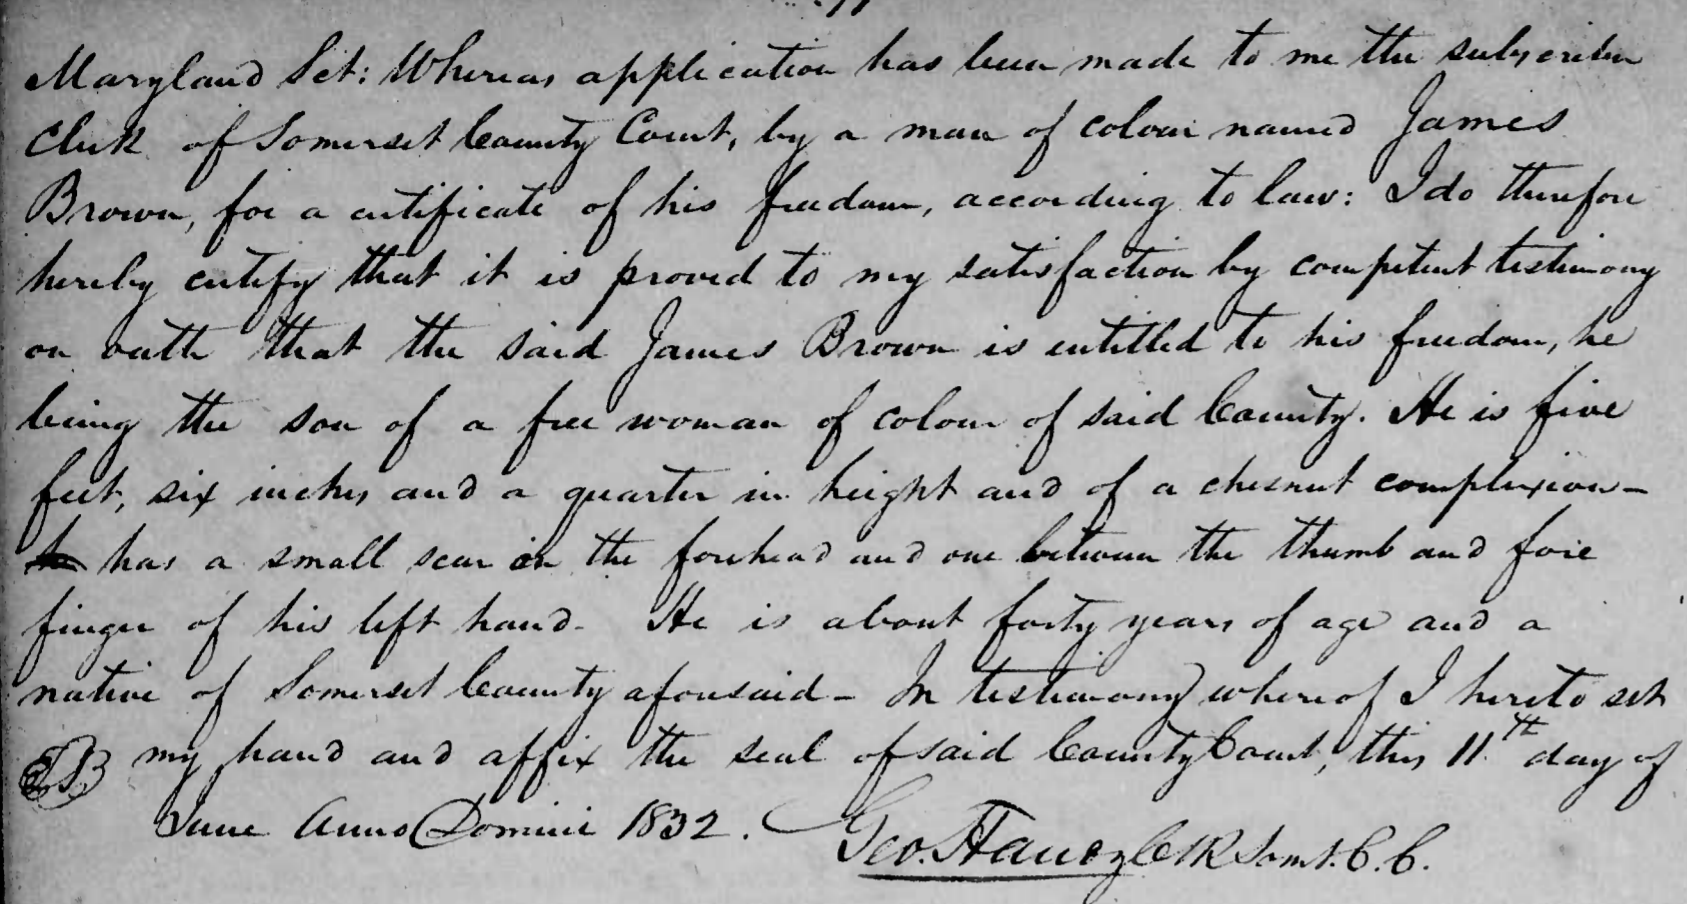 Maryland Sct: Whereas application has been made to me the subscriber
Clerk of Somerset County Court, by a man of colour named James
Brown, for a certificate of his freedom, according to law: I do therefore
hereby certify that it is proved to my satisfaction by competent testimony
on oath that the said James Brown is entitled to his freedom, he
being the son of a free woman of colour of said County. He is five
feet, six inches and a quarter in height and of a chesnut complexion—
has a small scar in the forehead and one between the thumb and fore
finger of his left hand. He is about forty years of age and a
native of Somerset County aforesaid— In testimony whereof I hereto set
my hand and affix the seal of said County Court, this 11th day of
June Anno Domini 1832.
Geo. Handy Clk Somt. C. C.